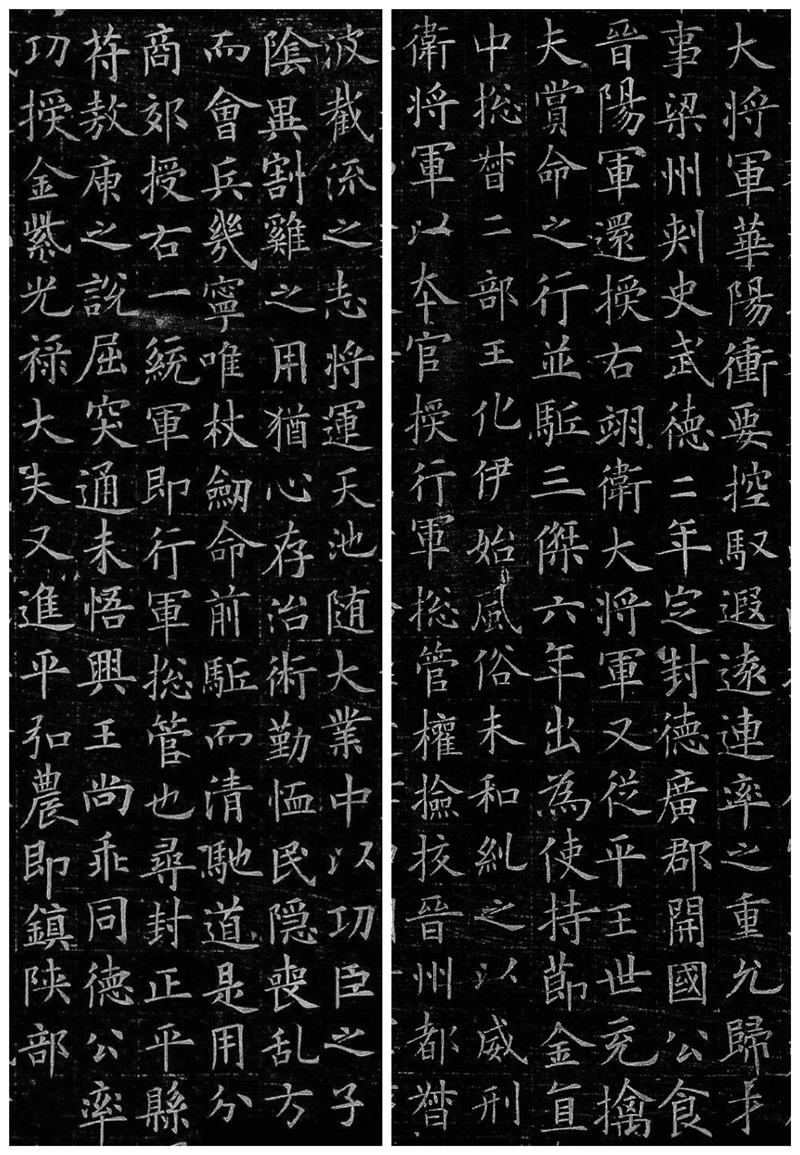 大将軍華陽衝要控馭遐遠連率之重允歸才
事梁州刾史武德二年㝎封德廣郡開國公食
晉陽軍還授右翊衛大将軍又從平王世充擒
夫賞命之行並駈三傑六年出為使持節金直
中揔督二部王化伊始風俗未和糺之以威刑
衛将軍以本官授行軍揔管權撿挍晉州都督
波截流之志将運天池随大業中以功臣之子
陰異割雞之用猶心存治術勤恤民隠喪乱方
而會兵幾寧唯杖劒命前駈而清馳道是用分
商郊授右一統軍即行軍揔管也尋封正平縣
苻敖庾之說屈突通未悟興王尚乖同德公率
功授金紫光禄大夫又進平弘農即鎮陝部